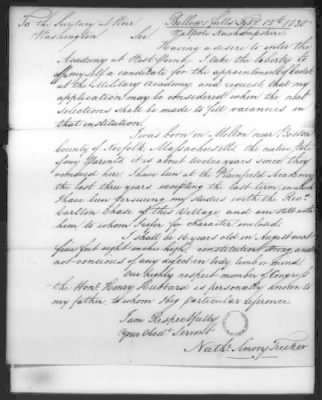 To the Secretary at War
Bellows falls Feby 10th 1838
Washington Sir
Walpole Newhampshire
Having a desire to enter the
Academy at West Point, I take the liberty to
offer myself a candidate for the appointment of Cadet
at the Military Academy and request that my
application may be considered when the next
selections shall be made to fill vacancies in
that institution
I was born in Milton near Boston
County of Norfolk Massachusetts the native State
of my Parents it is about twelve years since they
removed here. I have been at the Plainfield Academy
the last three years excepting the last term in which
I have been persuing my studies with the Revd.
Carlton Chase of this Village and am still with
him to whom I refer for character inclosed
I shall be 16 years old in August next
four feet eight inches high, constitution strong and
not conscious of any defect in body limb or mind.
Our highly respectd member of Congress
the Honl. Henry Hubbard is personally known to
my father, to whom I beg particular reference
I am Respectfully
Your Obedt. Servant
Nathl. Amory Tucker